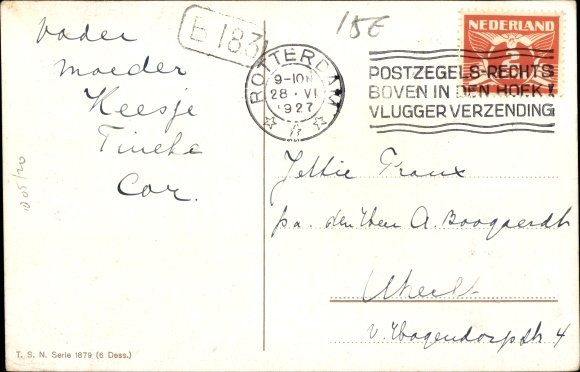 Vader
moeder
Keesje
Tineke
Cor.
B 183
15E
ROTTERDAM
9-10N
28 · VI
1927
NEDERLAND
2
POSTZEGELS-RECHTS
BOVEN IN DEN HOEK!
VLUGGER VERZENDING
Jettie Franx
p/a. den Heer A. Boogaerdt
Utrecht
v. Hogendorpstr 4
T. S. N. Serie 1879 (6 Dess.)